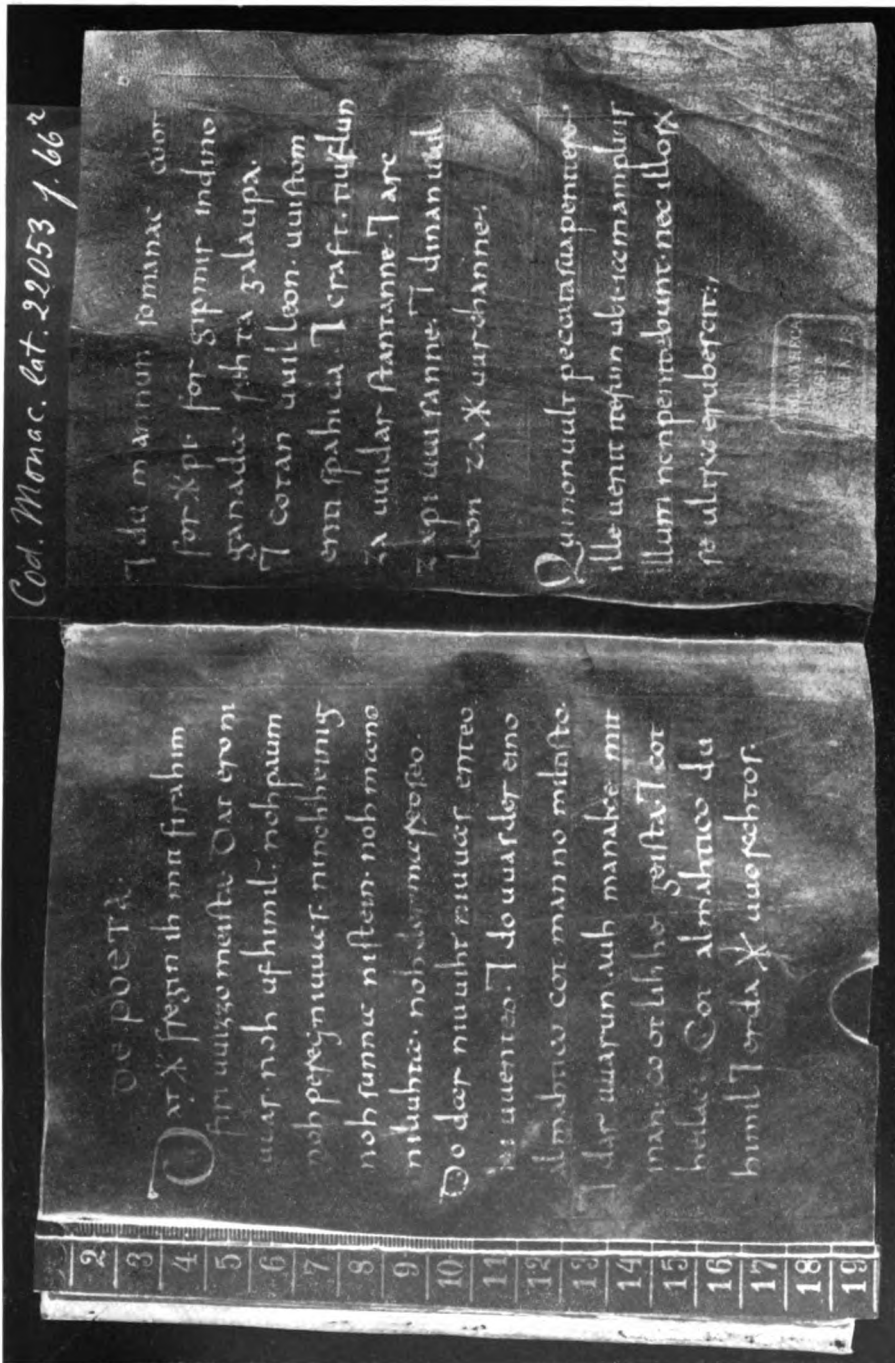 Cod. Monac. lat. 22053 f. 66r
DE POETA.
Dat ᚼ fregin ih mit firahim
firi uuizzo meista. Dat ero ni
uuas noh ufhimil. noh paum
noh pereg ni uuas. ni nohheinig
noh sunna ni stein. noh mano
ni liuhta. noh der mareo seo.
Do dar niuuiht ni uuas enteo
ni uuenteo. ⁊ do uuas der eino
almahtico cot manno miltisto.
⁊ dar uuarun auh manake mit
inan. coot lihhe geista. ⁊ cot
heilac. Cot almahtico du
himil ⁊ erda ᚼ uuorahtos.
⁊ du mannun so manac coot
for ᚼ pi. for gip mir in dino
ganada rehta galaupa.
⁊ cotan uuilleon. uuistom
enti spahida ⁊ craft. tiuflun
za uuidar stantanne. ⁊ arc
za pi uuisanne. ⁊ dinan uuil
leon za ᚼ uurchanne.
Qui non uult peccata sua penitere.
ille uenit iterum ubi iam amplius
illum non penitebunt. nec illorum
se ultra erubescit.
2
3
4
5
6
7
8
9
10
11
12
13
14
15
16
17
18
19